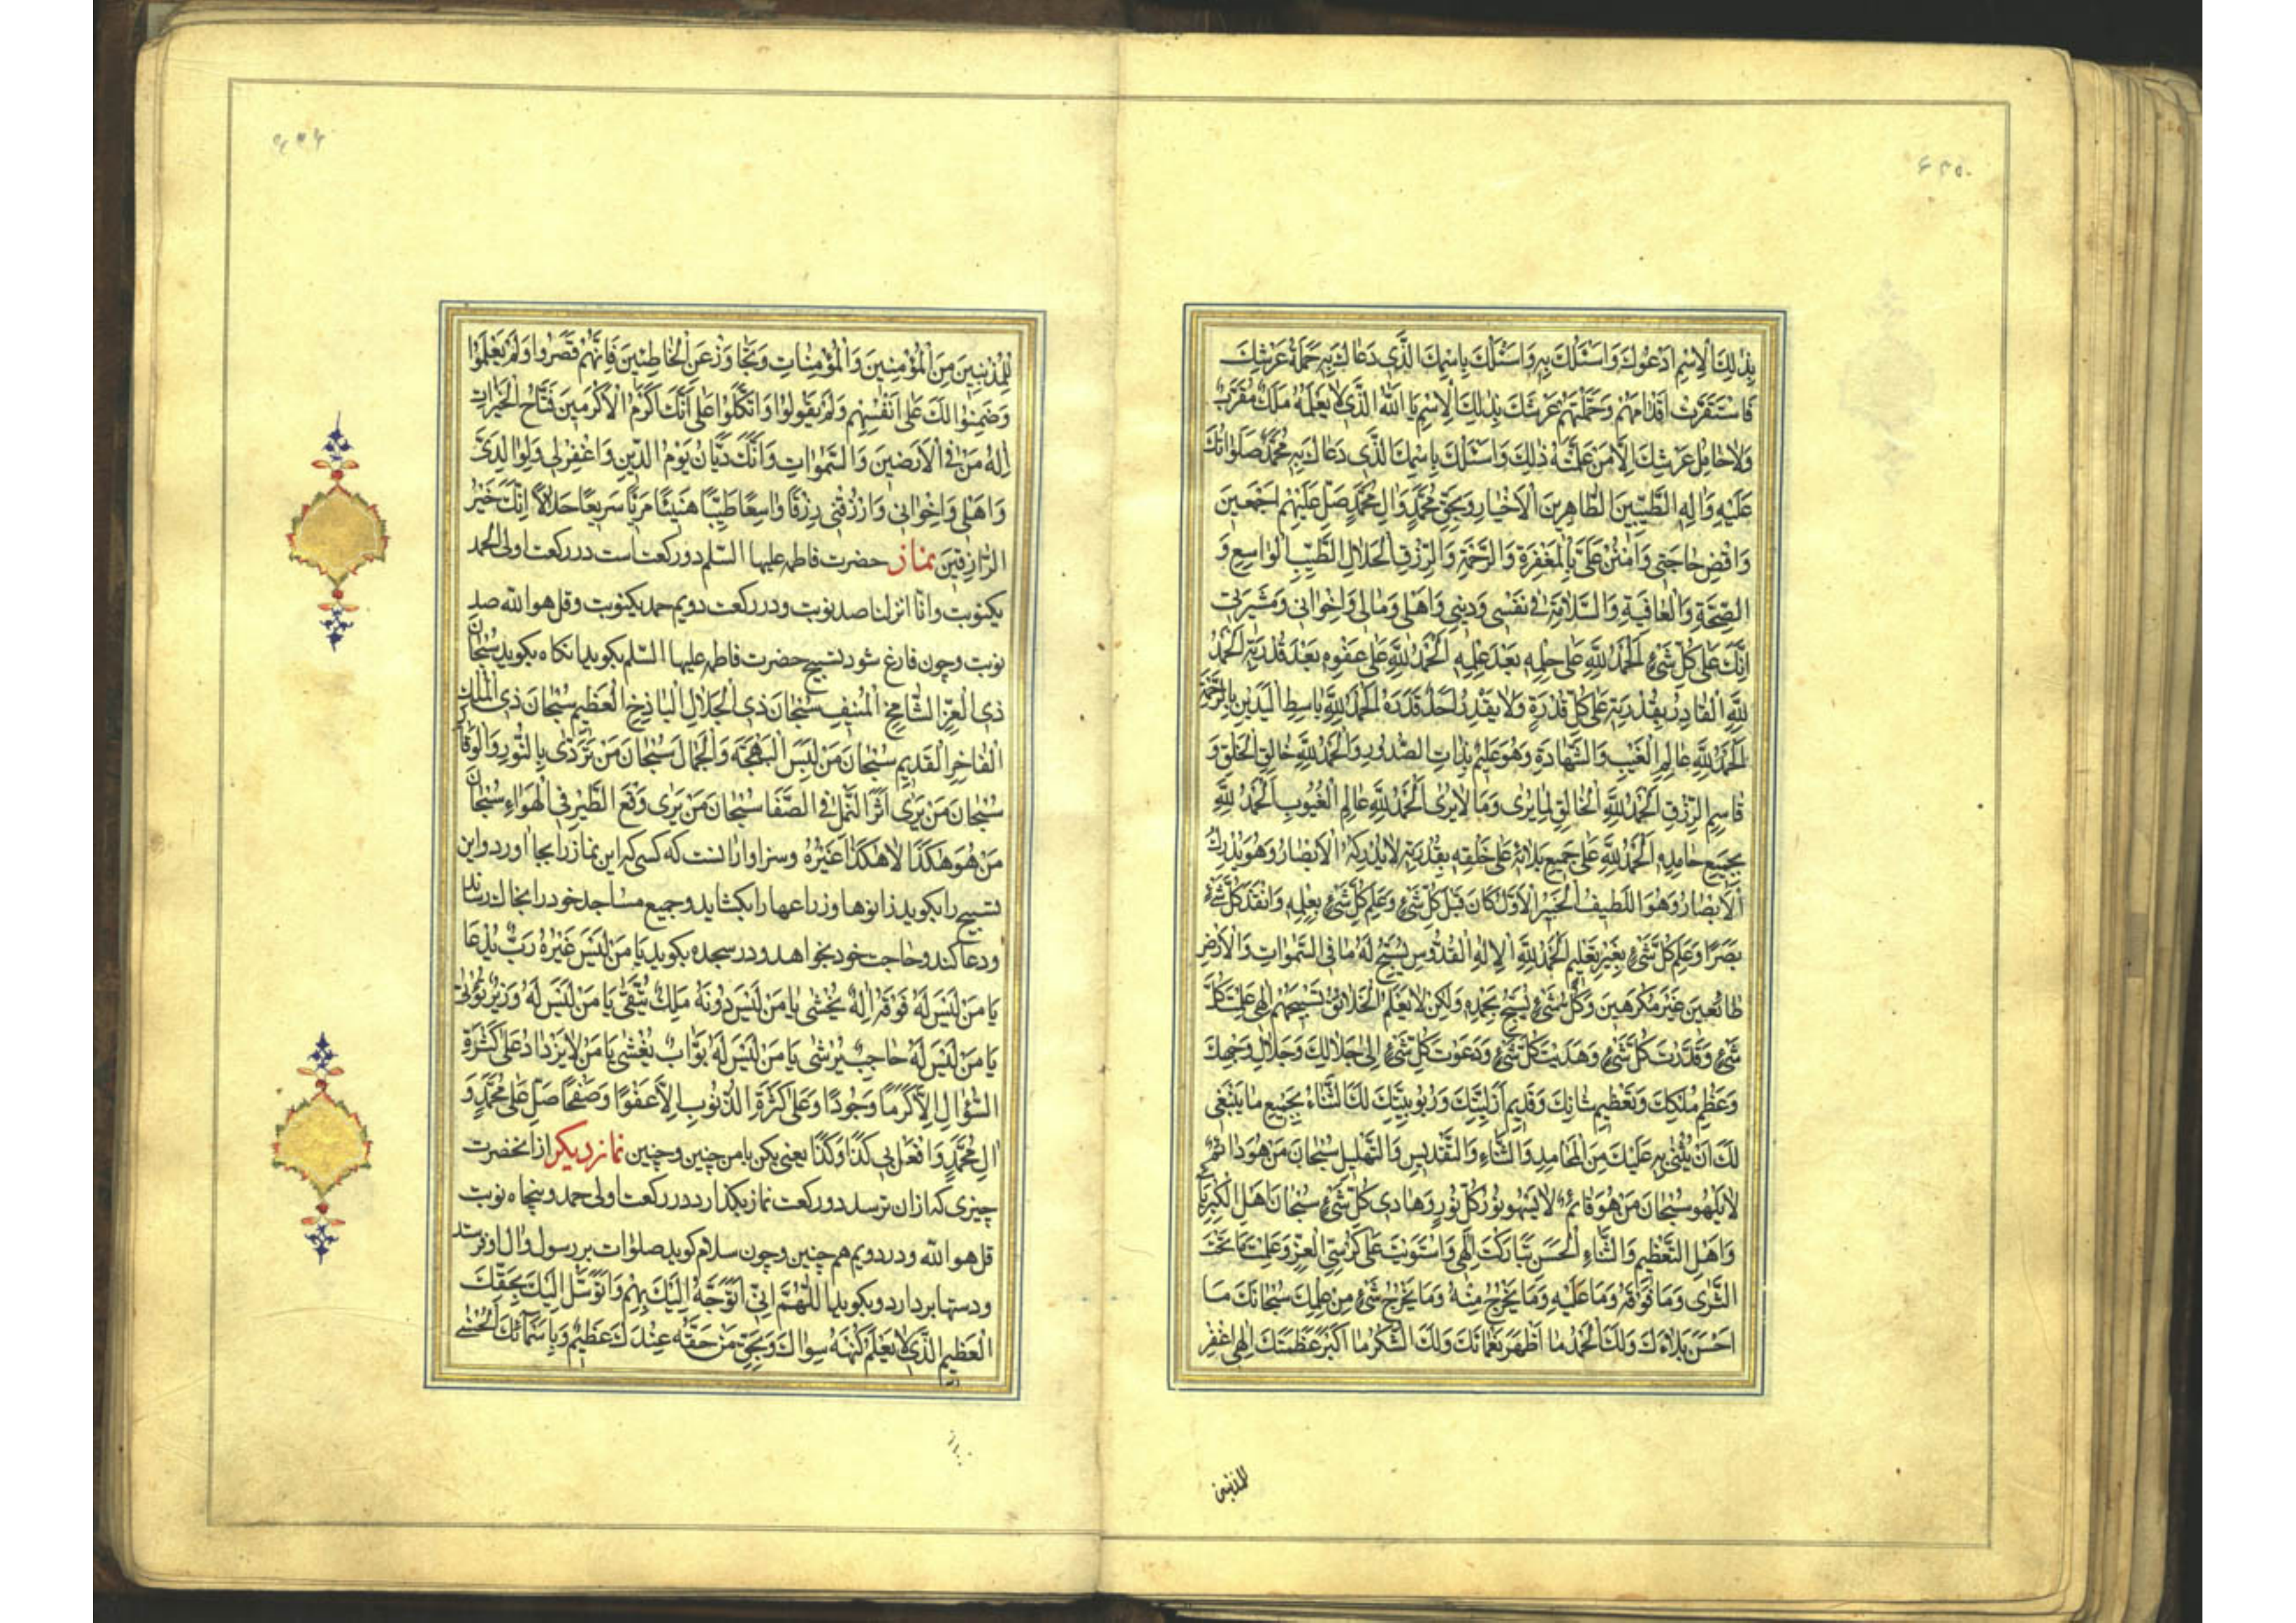 بِذٰلِكَ الْاِسْمِ اَدْعُوكَ وَاَسْئَلُكَ بِهِ وَاَسْئَلُكَ بِاسْمِكَ الَّذِى دَعٰاكَ بِهِ حَمَلَةُ عَرْشِكَ
فَاسْتَقَرَّتْ اَقْدٰامُهُمْ وَحَمَّلْتَهُمْ عَرْشَكَ بِذٰلِكَ الْاِسْمِ يٰا اَللّٰهُ الَّذِى لٰا يَعْلَمُهُ مَلَكٌ مُقَرَّبٌ
وَلٰا حٰامِلُ عَرْشِكَ اِلّٰا مَنْ عَلَّمْتَهُ ذٰلِكَ وَاَسْئَلُكَ بِاسْمِكَ الَّذِى دَعٰاكَ بِهِ مُحَمَّدٌ صَلَوٰاتُكَ
عَلَيْهِ وَاٰلِهِ الطَّيِّبِينَ الطّٰاهِرِينَ الْاَخْيٰارِ وَبِحَقِّ مُحَمَّدٍ وَاٰلِ مُحَمَّدٍ صَلِّ عَلَيْهِمْ اَجْمَعِينَ
وَاقْضِ حٰاجَتِى وَامْنُنْ عَلَىَّ بِالْمَغْفِرَةِ وَالرَّحْمَةِ وَالرِّزْقِ الْحَلٰالِ الطَّيِّبِ الْوٰاسِعِ وَ
الصِّحَّةِ وَالْعٰافِيَةِ وَالسَّلٰامَةِ فِى نَفْسِى وَدِينِى وَاَهْلِى وَمٰالِى وَاِخْوٰانِى وَعَشِيرَتِى
اِنَّكَ عَلٰى كُلِّ شَىْءٍ اَلْحَمْدُ لِلّٰهِ عَلٰى حِلْمِهِ بَعْدَ عِلْمِهِ اَلْحَمْدُ لِلّٰهِ عَلٰى عَفْوِهِ بَعْدَ قُدْرَتِهِ اَلْحَمْدُ
لِلّٰهِ الْقٰادِرِ بِقُدْرَتِهِ عَلٰى كُلِّ قُدْرَةٍ وَلٰا يَقْدِرُ اَحَدٌ قَدْرَهُ اَلْحَمْدُ لِلّٰهِ بٰاسِطِ الْيَدَيْنِ بِالرَّحْمَةِ
اَلْحَمْدُ لِلّٰهِ عٰالِمِ الْغَيْبِ وَالشَّهٰادَةِ وَهُوَ عَلِيمٌ بِذٰاتِ الصُّدُورِ وَالْحَمْدُ لِلّٰهِ خٰالِقِ الْخَلْقِ وَ
قٰاسِمِ الرِّزْقِ اَلْحَمْدُ لِلّٰهِ الْخٰالِقِ لِمٰا يُرٰى وَمٰا لٰا يُرٰى اَلْحَمْدُ لِلّٰهِ عٰالِمِ الْغُيُوبِ اَلْحَمْدُ لِلّٰهِ
بِجَمِيعِ مَحٰامِدِهِ اَلْحَمْدُ لِلّٰهِ عَلٰى جَمِيعِ بَلٰائِهِ عَلٰى خَلْقِهِ بِقُدْرَتِهِ لٰا يُدْرِكُهُ الْاَبْصٰارُ وَهُوَ يُدْرِكُ
الْاَبْصٰارَ وَهُوَ اللَّطِيفُ الْخَبِيرُ الْاَوَّلُ كٰانَ قَبْلَ كُلِّ شَىْءٍ وَعَلِمَ كُلَّ شَىْءٍ بِعِلْمِهِ وَاَنْفَذَ كُلَّ شَىْءٍ
بَصَرًا وَعَلِمَ كُلَّ شَىْءٍ بِغَيْرِ تَعْلِيمٍ اَلْحَمْدُ لِلّٰهِ الْاِلٰهِ الْقُدُّوسِ يُسَبِّحُ لَهُ مٰا فِى السَّمٰوٰاتِ وَالْاَرْضِ
طٰائِعِينَ غَيْرَ مُكْرَهِينَ وَكُلُّ شَىْءٍ يُسَبِّحُ بِحَمْدِهِ وَلٰكِنْ لٰا يَعْلَمُ الْخَلٰائِقُ تَسْبِيحَهُمْ اِلٰهِى عَلِمْتَ كُلَّ
شَىْءٍ وَقَدَّرْتَ كُلَّ شَىْءٍ وَهَدَيْتَ كُلَّ شَىْءٍ وَدَعَوْتَ كُلَّ شَىْءٍ اِلٰى جَلٰالِكَ وَجَلٰالِ وَجْهِكَ
وَعِظَمِ مُلْكِكَ وَتَعْظِيمِ شٰانِكَ وَقَدِيمِ اَزَلِيَّتِكَ وَرُبُوبِيَّتِكَ لَكَ الثَّنٰاءُ بِجَمِيعِ مٰا يَنْبَغِى
لَكَ اَنْ يُثْنٰى بِهِ عَلَيْكَ مِنَ الْمَحٰامِدِ وَالثَّنٰاءِ وَالتَّقْدِيسِ وَالتَّهْلِيلِ سُبْحٰانَ مَنْ هُوَ دٰائِمٌ
لٰا يَلْهُو سُبْحٰانَ مَنْ هُوَ قٰائِمٌ لٰا يَسْهُو نُورُ كُلِّ نُورٍ وَهٰادِى كُلِّ شَىْءٍ سُبْحٰانَ اَهْلِ الْكِبْرِيٰاءِ
وَاَهْلِ التَّعْظِيمِ وَالثَّنٰاءِ الْحَسَنِ تَبٰارَكْتَ اِلٰهِى وَاسْتَوَيْتَ عَلٰى كُرْسِىِّ الْعِزِّ وَعَلِمْتَ مٰا تَحْتَ
الثَّرٰى وَمٰا فَوْقَهُ وَمٰا عَلَيْهِ وَمٰا يَخْرُجُ مِنْهُ وَمٰا يَخْرُجُ شَىْءٌ مِنْ عِلْمِكَ سُبْحٰانَكَ مٰا
اَحْسَنَ بَلٰاءَكَ وَلَكَ الْحَمْدُ مٰا اَظْهَرَ نَعْمٰائَكَ وَلَكَ الشُّكْرُ مٰا اَكْبَرَ عَظَمَتَكَ اِلٰهِى اغْفِرْ
للمذنبین
لِلْمُذْنِبِينَ مِنَ الْمُؤْمِنِينَ وَالْمُؤْمِنٰاتِ وَتَجٰاوَزْ عَنِ الْخٰاطِئِينَ فَاِنَّهُمْ قَصَّرُوا وَلَمْ يَعْلَمُوا
وَضَمِنُوا لَكَ عَلٰى اَنْفُسِهِمْ وَلَمْ يَفُوا وَاتَّكَلُوا عَلٰى اَنَّكَ اَكْرَمُ الْاَكْرَمِينَ فَتّٰاحُ الْخَيْرٰاتِ
اِلٰهُ مَنْ فِى الْاَرَضِينَ وَالسَّمٰوٰاتِ وَاَنَّكَ دَيّٰانُ يَوْمِ الدِّينِ وَاغْفِرْ لِى وَلِوٰالِدَىَّ
وَاَهْلِى وَاِخْوٰانِى وَارْزُقْنِى رِزْقًا وٰاسِعًا طَيِّبًا هَنِيئًا مَرِيًّا سَرِيعًا حَلٰالًا اِنَّكَ خَيْرُ
الرّٰازِقِينَ نماز حضرت فاطمه علیها السّلم دو رکعت است در رکعت اولی الحمد
یکنوبت وانّا انزلنا صد نوبت ودر رکعت دویم حمد یکنوبت وقل هو اللّه صد
نوبت وچون فارغ شود تسبیح حضرت فاطمه علیها السّلم بکوید انکاه بکوید سُبْحٰانَ
ذِى الْعِزِّ الشّٰامِخِ الْمُنِيفِ سُبْحٰانَ ذِى الْجَلٰالِ الْبٰاذِخِ الْعَظِيمِ سُبْحٰانَ ذِى الْمُلْكِ
الْفٰاخِرِ الْقَدِيمِ سُبْحٰانَ مَنْ لَبِسَ الْبَهْجَةَ وَالْجَمٰالَ سُبْحٰانَ مَنْ تَرَدّٰى بِالنُّورِ وَالْوَقٰارِ
سُبْحٰانَ مَنْ يَرٰى اَثَرَ النَّمْلِ فِى الصَّفٰا سُبْحٰانَ مَنْ يَرٰى وَقْعَ الطَّيْرِ فِى الْهَوٰاءِ سُبْحٰانَ
مَنْ هُوَ هٰكَذٰا لٰا هٰكَذٰا غَيْرُهُ وسزاوار انست که کسی که این نماز را بجا اورد واین
تسبیح را بکوید زانوها وزراعها را بکشاید وجمیع مساجد خود را بخاک رساند
ودعا کند وحاجت خود بخواهد ودر سجده بکوید يٰا مَنْ لَيْسَ غَيْرُهُ رَبٌّ يُدْعٰا
يٰا مَنْ لَيْسَ لَهُ فَوْقَهُ اِلٰهٌ يُخْشٰى يٰا مَنْ لَيْسَ دُونَهُ مَلِكٌ يُتَّقٰى يٰا مَنْ لَيْسَ لَهُ وَزِيرٌ يُؤْتٰى
يٰا مَنْ لَيْسَ لَهُ حٰاجِبٌ يُرْشٰى يٰا مَنْ لَيْسَ لَهُ بَوّٰابٌ يُغْشٰى يٰا مَنْ لٰا يَزْدٰادُ عَلٰى كَثْرَةِ
السُّؤٰالِ اِلّٰا كَرَمًا وَجُودًا وَعَلٰى كَثْرَةِ الذُّنُوبِ اِلّٰا عَفْوًا وَصَفْحًا صَلِّ عَلٰى مُحَمَّدٍ وَ
اٰلِ مُحَمَّدٍ وَافْعَلْ بِى كَذٰا وَكَذٰا یعنی بکن بامن چنین وچنین نماز دیکر از انحضرت
چیزی که ازان ترسد دو رکعت نماز بکذارد در رکعت اولی حمد وپنجاه نوبت
قل هو اللّه ودر دویم هم چنین وچون سلام کوید صلوات بر رسول وال او فرستد
ودستها بردارد وبکوید اَللّٰهُمَّ اِنِّى اَتَوَجَّهُ اِلَيْكَ بِهِمْ وَاَتَوَسَّلُ اِلَيْكَ بِحَقِّكَ
الْعَظِيمِ الَّذِى لٰا يَعْلَمُ كُنْهَهُ سِوٰاكَ وَبِحَقِّ مَنْ حَقُّهُ عِنْدَكَ عَظِيمٌ وَبِاَسْمٰائِكَ الْحُسْنٰى